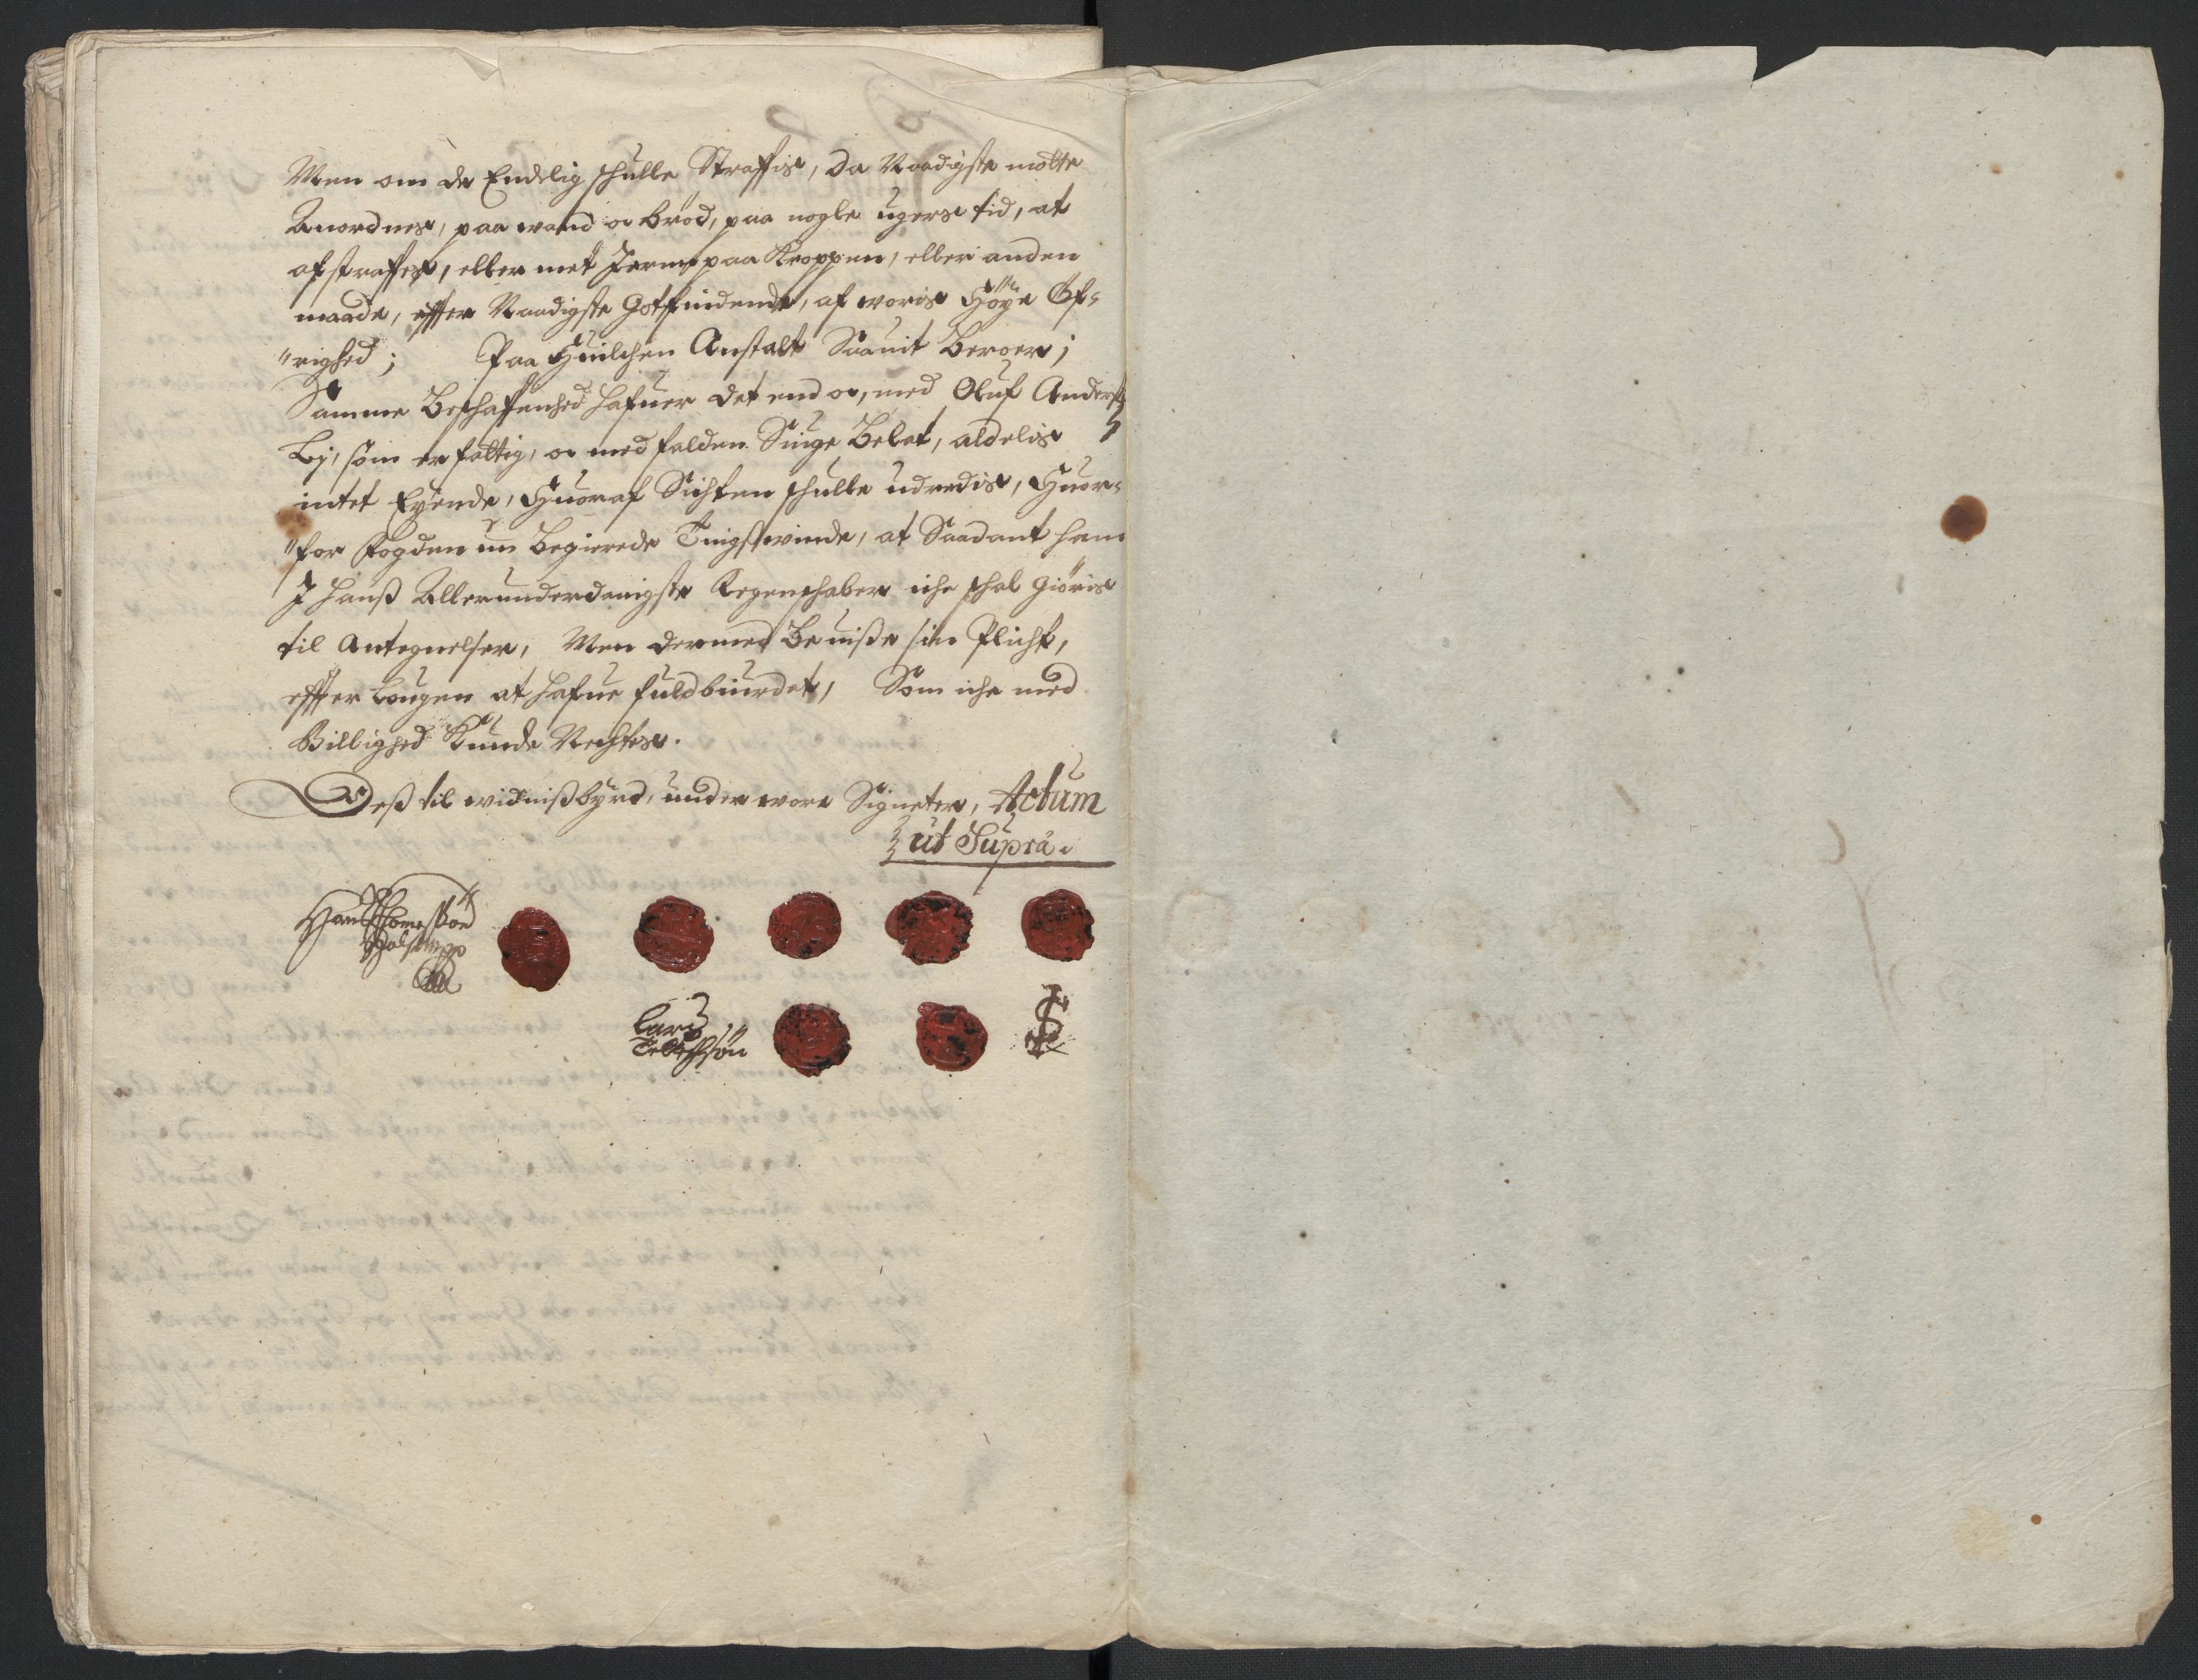 Men om de Endelig schulle Straffis, da Naadigste motte
Anordnes, paa wand oc brød, paa nogle ugers tid, at
afstraffes, eller met Jern paa Kroppen, eller anden
maade, effter Naadigste Gotfindende, af woris Høye Øf-
"righed; Paa Huilchen Anstalt Saauit Beroer;
Samme Beschaffenhed hafuer det end oc, med Oluf Anders
By, som er fattig, oc med falden Siuge Belat, aldelis
intet Eyende, Huoraf Sichten schulle udredis, Huor-
"for Fogden nu Begierede Tingswinde, at Saadant ham
J Hanß Allerunderdanigste Regenschaber iche schal Giøris
til Antegnelser, Men dermed Beuiße sin Plicht,
effter Lougen at hafue fuldbiurdet, Som iche med
Billighed Kunde Nechtes.
Deß til widnißbyrd, under wore Signeter, Actum
ut Supra.
Hans
Lars